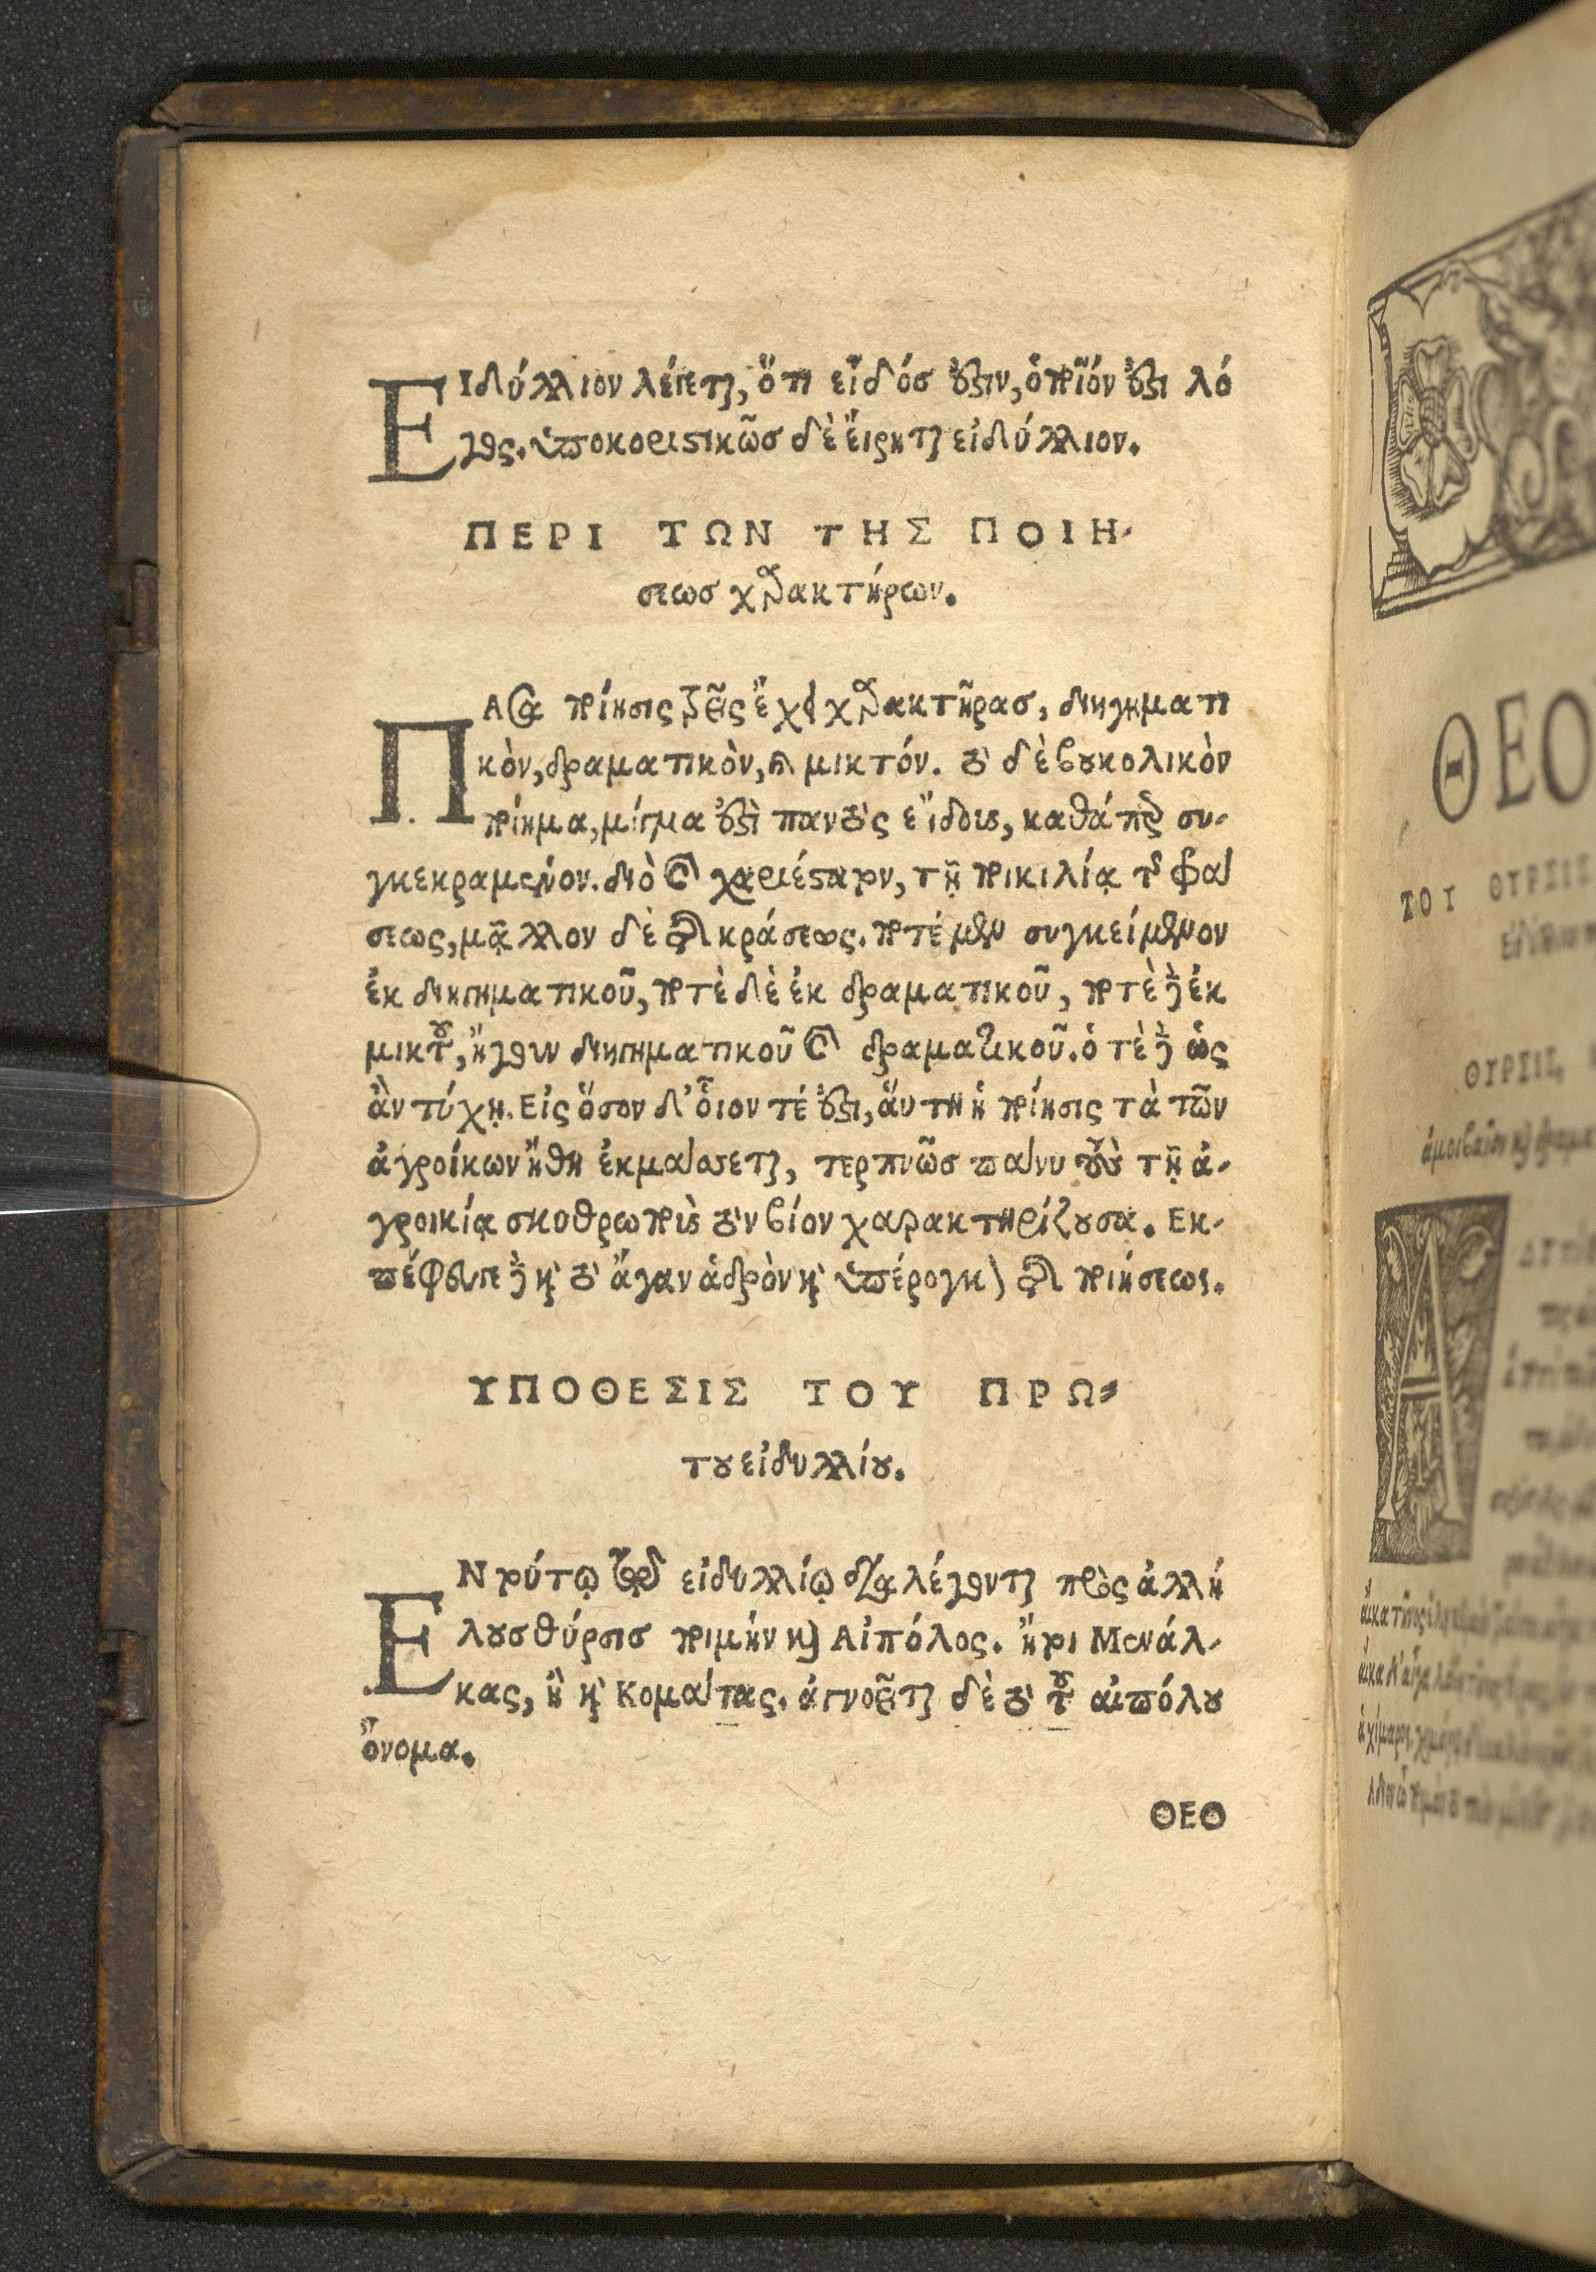 Εἰδύλλιον λέγεται, ὅτι εἶδός ἐστιν, ὁποῖόν ἐστι λό
γος. ὑποκοριστικῶσ δὲ ἔιρηται εἰδύλλιον.
ΠΕΡΙ ΤΩΝ ΤΗΣ ΠΟΙΗ-
σεωσ χαρακτήρων.
Πᾶσα ποίησις τρεῖς ἔχει χαρακτῆρασ, διηγηματι
κὸν, δραματικὸν, καὶ μικτόν. τὸ δὲ βουκολικὸν
ποίημα, μίγμα ἐστὶ παντὸς εἴδους, καθάπερ συ-
γκεκραμένον. διὸ καὶ χαριέστερον, τῇ ποικιλίᾳ τῆς
μᾶλλον δὲ τῆς κράσεως. ποτὲ μὲν συγκείμενον
ἐκ διηγηματικοῦ, ποτὲ δὲ ἐκ δραματικοῦ, ποτὲ δὲ ἐκ
μικτοῦ, ἤγουν διηγηματικοῦ καὶ δραματικοῦ. ὁτὲ δὲ ὡς
ἂν τύχῃ. Εἰς ὅσον δ' οἷον τέ ἐστι, ἅυτη ἡ ποίησις τὰ τῶν
ἀγροίκων ἤθη ἐκμάσσεται, τερπνῶσ πάνυ τοὺς τῇ ἀ-
γροικίᾳ σκυθρωποὺς τὸν βίον χαρακτηρίζουσα. Εκ-
πέφευγε δὲ καὶ τὸ ἄγαν ἁδρὸν καὶ ὑπέρογκον τῆς ποιήσεως.
ΥΠΟΘΕΣΙΣ ΤΟΥ ΠΡΩ-
του εἰδυλλίου.
Εν τούτῳ τῷ εἰδυλλίῳ διαλέγονται πρὸς ἀλλή
λουσ θύρσισ ποιμὴν καὶ Αἰπόλος. ἤτοι Μενάλ-
κας, ἢ καὶ Κομάτας. ἀγνοεῖται δὲ τὸ τοῦ αἰπόλου
ὄνομα.
ΘΕΟ
ΘΕΟ
ΤΟΥ ΘΥΡΣΙΣ
ΘΥΡΣΙΣ,